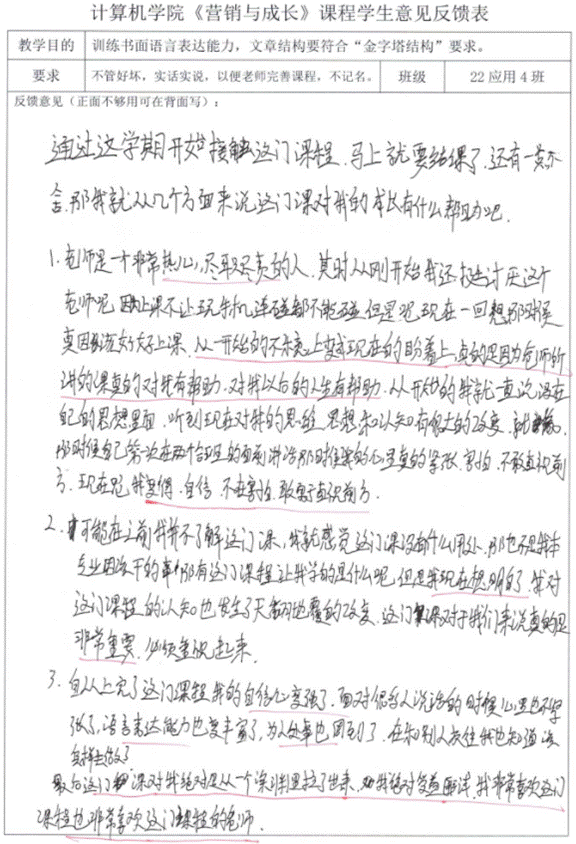 计算机学院《营销与成长》课程学生意见反馈表
教学目的 训练书面语言表达能力，文章结构要符合“金字塔结构”要求。
要求 不管好坏，实话实说，以便老师完善课程，不记名。 班级 22应用4班
反馈意见（正面不够用可在背面写）：
通过这学期开始接触这门课程，马上就要结课了，还有一点不
舍，那我就从几个方面来说这门课对我的成长有什么帮助吧.
1、老师是一个非常热心，尽职尽责的人，其时从刚开始我还挺讨厌这个
老师呢 因为上课不让玩手机连碰都不能碰 但是呢 现在一回想那时候
真因该好好上课，从一开始的不乐意上变成现在的盼着上，真的是因为老师所
讲的课真的对我有帮助，对我以后的人生有帮助，从开始的我就一直沉浸在
自己的思想里面，听到现在对我的思维，思想和认知有很大的改变，
那时候自己第一次在两个班的面前讲话那时候的心里真的紧张，害怕，不敢直视前
方，现在呢，我变得，自信，不在害怕，敢于直视前方.
2、可能在之前我并不了解这门课，我就感觉这门课没有什么用处，那也不是我本
专业因该干的事，那有这门课程让我学的是什么呢，但是我现在想明白了，我对
这门课程的认知也发生了天翻地覆的改变，这门课对于我们来说真的是
非常重要，必须重视起来.
3、自从上完了这门课程我的自信心变强了，面对很多人说话的时候心里也不紧
张了，语言表达能力也变丰富了，为人处事也，周到了，在和别人交往我也知道该
怎样去做了
最后这门课对我绝对是从一个深渊里拉了出来，我绝对，我非常喜欢这门
课程也非常喜欢这门课程的老师.